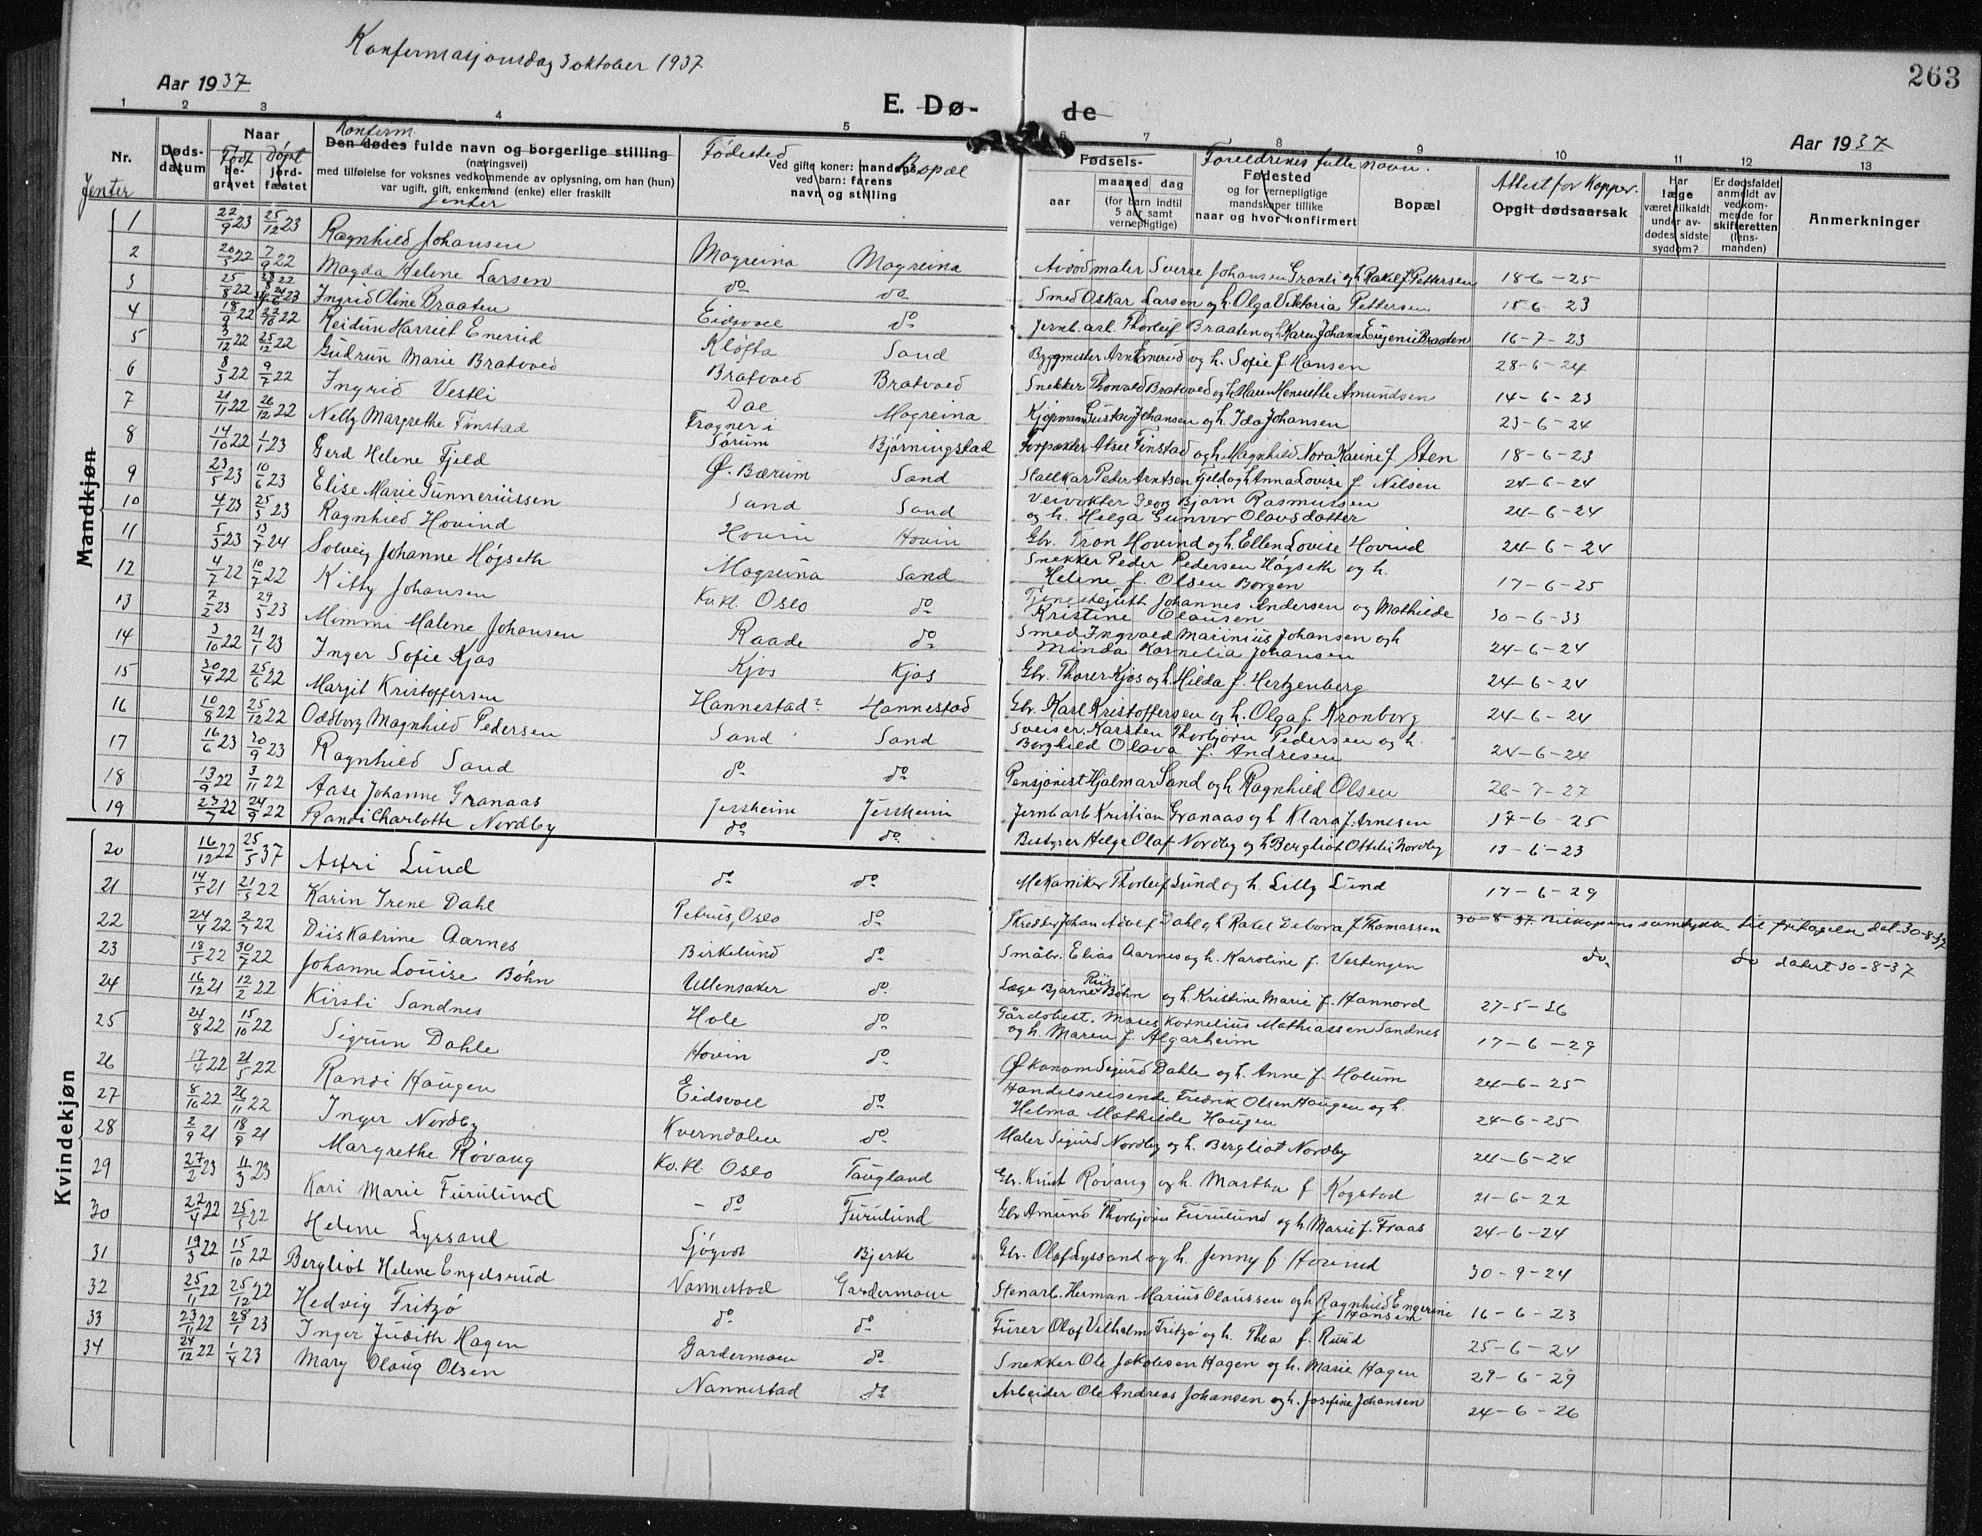 263
Konfirmasjonsdag 3 oktober 1937
Aar 1937
E. Dø- de
Aar 1937
1 2 3 4 5 6 7 8 9 10 11 12 13
Nr. Jenter
Døds-datum
Naar
Født Døpt
be-gravet jord-fæstet
Konfirm.
Den dødes fulde navn og borgerlige stilling
(næringsvei)
med tilføielse for voksnes vedkommende av oplysning, om han (hun)
var ugift, gift, enkemand (enke) eller fraskilt
Jenter
Fødested Bopæl
Ved gifte koner: mandens,
ved barn: farens
navn og stilling
Fødsels-
aar
maaned dag
(for barn indtil 5 aar samt vernepligtige)
Foreldrenes fulle navn.
Fødested
og for vernepligtige
mandskaper tillike
naar og hvor konfirmert
Bopæl
Attest for Kopper.
Opgit dødsaarsak
Har læge været tilkaldt under av-dødes sidste sygdom?
Er dødsfaldet anmeldt av vedkom-mende for skifteretten (lens-manden)
Anmerkninger
Mandkjøn
1 22/9 23 25/12 23 Ragnhild Johansen Mogreina Mogreina Avdød maler Sverre Johansen Granli og h. Rakel f. Pettersen 18-6-25
2 20/5 22 7/9 22 Magda Helene Larsen do do Smed Oskar Larsen og h. Olga Viktoria Pettersen 15-6 23
3 25/8 22 Ingrid Oline Braaten Eidsvoll do Jernb. arb. Thorleif Braaten og h. Karen Johanne Eugenie Braaten 16-7-23
4 18/9 22 22/10 22 Reidun Harriet Enerud Kløfta Sand Byggmester Arnt Enerud og h. Sofie f. Hansen 28-6-24
5 3/12 22 25/12 22 Gudrun Marie Bratvold Bratvold Bratvold Snekker Thorvald Bratvold og h. Maren Henriette Amundsen 14-6-23
6 8/5 22 9/7 22 Ingrid Vestli Dal Mogreina Kjøpmann Gustav Johansen og h. Ida Johansen 23-6-24
7 21/11 22 26/12 22 Nelly Margrethe Finstad Frogner i Sørum Bjørningstad Forpakter Aksel Finstad og h. Magnhild Nora Karine f. Sten 18-6-23
8 14/10 22 1/1 23 Gerd Helene Fjeld Ø. Bærum Sand Stallkar Peder Arntsen Fjeld og h. Anna Lovise f. Nilsen 24-6-24
9 23/5 23 10/6 23 Elise Marie Gunneriussen Sand Sand Georg Bjarn Rasmussen og h. Helga Gunvor Olavsdatter 24-6-24
10 4/1 23 25/3 23 Ragnhild Hovind Hovin Hovin Gbr. Tron Hovind og h. Ellen Lovise Hovind 24-6-24
11 5/3 23 13/7 24 Solveig Johanne Høgseth Mogreina Sand Snekker Peder Pedersen Høgseth og h. Helene f. Olsen Borgen 17-6-25
12 4/7 22 10/7 22 Kitty Johansen Kv.kl. Oslo do Tjenestegutt Johannes Andersen og Mathilde Kristine Clausen 30-6-33
13 7/2 23 29/3 23 Mimmi Malene Johansen Raade do Smed Ingvald Marinius Johansen og h. Minda Kornelia Johansen 24-6-24
14 3/10 22 21/1 23 Inger Sofie Kjos Kjos Kjos Gbr. Thorer Kjos og h. Hilda f. Hertzenberg 24-6-24
15 30/4 22 25/6 22 Margit Kristoffersen Hannestad? Hannestad Gbr. Karl Kristoffersen og h. Olga f. Kronborg 24-6-24
16 10/8 22 25/12 22 Oddborg Magnhild Pedersen Sand Sand Sveiser Karsten Thorbjørn Pedersen og h. Borghild Olava f. Andresen 24-6-24
17 16/6 23 30/9 23 Ragnhild Sand do do Pensjonist Hjalmar Sand og h. Ragnhild Olsen 26-7-27
18 13/9 22 3/11 22 Aase Johanne Granaas Jessheim Jessheim Jernb arb Kristian Granaas og h Klara f. Arnesen 17-6-25
19 23/7 22 24/9 22 Randi Charlotte Nordby do do Bestyrer Helge Olaf Nordby og h. Bergliot Ottilie Nordby 13-6-23
Kvindekjøn
20 16/12 22 25/5 37 Astri Lund do do Mekaniker Thorleif Lund og h. Lilly Lund 17-6-29
21 14/5 21 21/5 22 Karin Irene Dahl Petrus, Oslo do Skredder Johan Adolf Dahl og h Rakel Debora f. Thomassen 30-8-37 Biskopens samtykke til fritagelse dat. 30-8-37
22 24/4 22 2/7 22 Diis Katrine Aarnes Birkelund do Småbr. Elias Aarnes og h. Karoline f. Vestengen do. do datert 30-8-37
23 18/5 22 30/7 22 Johanne Louise Bøhn Ullensaker do Læge Bjarne Riis Bøhn og h. Kristine Marie f. Hannord 27-5-26
24 16/12 21 12/2 22 Kirsti Sandnes Hole do Gårdsbest. Moses Kornelius Mathiassen Sandnes og h. Maren f. Algarheim 17-6-29
25 24/8 22 15/10 22 Sigrun Dahle Hovin do Økonom Sigurd Dahle og h. Anne f. Holum 24-6-25
26 17/4 22 21/5 22 Randi Haugen Eidsvoll do Handelsreisende Fredrik Olsen Haugen og h. Helma Mathilde Haugen 24-6-25
27 8/10 22 26/11 22 Inger Nordby Kverndalen do Maler Sigurd Nordby og h. Bergliot Nordby 24-6-24
28 2/9 21 18/9 21 Margrethe Røvang Kv.kl. Oslo Taugland Gbr. Knut Røvang og h. Martha f Kogstad 21-6-22
29 27/2 23 11/3 23 Kari Marie Furulund - do Furulund Gbr Amund Thorbjørn Furulund og h Marie f. Fraas 24-6-24
30 22/4 22 25/5 22 Helene Lyssand Bjerke Gbr. Olaf Lyssand og h. Jenny f Hovind 30-9-24
31 19/3 22 15/10 22 Bergliot Helene Engelsrud Nannestad Gardermoen Stenarb. Herman Marius Olaussen og h Ragnhild Engerine f Hansen 16-6-23
32 25/11 22 25/12 22 Hedvig Fritzø do do Furer Olaf Vilhelm Fritzø og h. Thea f. Ruud 25-6-24
33 23/11 22 28/1 23 Inger Judith Hagen Gardermoen do Snekker Ole Jakobsen Hagen og h. Marie Hagen 29-6-29
34 24/12 22 1/4 23 Mary Olaug Olsen Nannestad do Arbeider Ole Andreas Johansen og h. Josefine Johansen 24-6-26